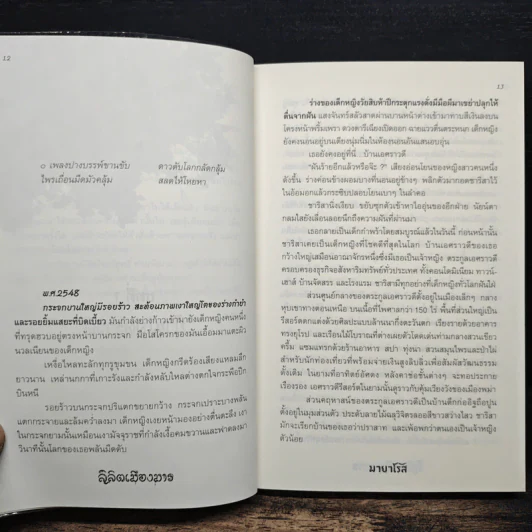 12
๐ เพลงปางบรรพ์ขานขับ ดาวดับโลกกลัดกลุ้ม
ไพรเถื่อนมืดมัวคลุ้ม สลดให้โหยหา
พ.ศ.2548
กระจกบานใหญ่มีรอยร้าว สะท้อนภาพเงาใหญ่โตของร่างกำยำ
และรอยยิ้มแสยะที่บิดเบี้ยว มันกำลังย่างก้าวเข้ามายังเด็กหญิงคนหนึ่ง
ที่ทรุดฮวบอยู่ตรงหน้าบานกระจก มือโสโครกของมันเอื้อมมาแตะผิว
นวลเนียนของเด็กหญิง
เหงื่อไหลทะลักทุกรูขุมขน เด็กหญิงกรีดร้องเสียงแหลมเล็ก
ยาวนาน เหล่านกกาที่เกาะรังและกำลังหลับใหลต่างตกใจกระพือปีก
บินหนี
รอยร้าวบนกระจกปริแตกขยายกว้าง กระจกเปราะบางพลัน
แตกกระจายและล้มคว่ำลงมา เด็กหญิงเงยหน้ามองอย่างตื่นตะลึง เงา
ในกระจกยามนั้นเหมือนเงามัจจุราชที่กำลังเงื้อคมขวานและฟาดลงมา
วินาทีนั้นโลกของเธอพลันมืดดับ
ลิลิตเมืองมาร
13
ร่างของเด็กหญิงวัยสิบห้าปีกระตุกแรงดั่งมีมือผีมาเขย่าปลุกให้
ตื่นจากฝัน แสงจันทร์สลัวสาดผ่านบานหน้าต่างเข้ามาทาบสีเงินลงบน
โครงหน้าพริ้มเพรา ดวงตารีเฉียงเปิดออก ฉายแววตื่นตระหนก เด็กหญิง
ยังคงนอนอยู่บนเตียงนุ่มนิ่มในห้องนอนอันแสนอบอุ่น
เธอยังคงอยู่ที่นี่...บ้านเอคราวดี
“ฝันร้ายอีกแล้วหรือจ๊ะ ?” เสียงอ่อนโยนของหญิงสาวคนหนึ่ง
ดังขึ้น ร่างค่อนข้างผอมบางที่นอนอยู่ข้างๆ พลิกตัวมากอดชาริสาไว้
ในอ้อมอกแล้วกระซิบปลอบโยนเบาๆ ในลำคอ
ชาริสานิ่งเงียบ ขยับซุกตัวเข้าหาไออุ่นของอีกฝ่าย นัยน์ตา
กลมใสยังเลื่อนลอยนึกถึงความฝันที่ผ่านมา
เธอกลายเป็นเด็กกำพร้าโดยสมบูรณ์แล้วในวันนี้ ก่อนหน้านั้น
ชาริสาเคยเป็นเด็กหญิงที่โชคดีที่สุดในโลก บ้านเอคราวดีของเธอ
กว้างใหญ่เสมือนอาณาจักรหนึ่งซึ่งมีเธอเป็นเจ้าหญิง ตระกูลเอคราวดี
ครอบครองธุรกิจอสังหาริมทรัพย์ทั่วประเทศ ทั้งคอนโดมิเนียม ทาวน์-
เฮาส์ บ้านจัดสรร และโรงแรม ชาริสามีทุกอย่างที่เด็กหญิงทั่วโลกฝันใฝ่
ส่วนคุ้มเอกราวดีตั้งอยู่ในเมืองเล็กๆ กลาง
หุบเขาทางตอนเหนือ บนเนื้อที่ไพศาลกว่า 150 ไร่ พื้นที่ส่วนใหญ่เป็น
รีสอร์ตตกแต่งด้วยศิลปะแบบล้านนากึ่งตะวันตก เรียงรายด้วยอาคาร
ทรงยุโรป และเรือนไม้โบราณที่ต่างดูโดดเด่นท่ามกลางสวนเขียว
ครึ้ม แซมแทรกด้วยร้านอาหาร สปา ทุ่งนา สวนสมุนไพรและป่าไม้
สำหรับนักท่องเที่ยวที่พร้อมจ่ายเงินสูงลิบลิ่วเพื่อสัมผัสวัฒนธรรม
ดั้งเดิม ในยามที่อาทิตย์อัสดง หลังคาโค้งซ้อนต่างๆ จะทอประกาย
เรืองรอง เอคราวดีรีสอร์ตในยามนั้นดูราวกับคุ้มเวียงวังของเมืองพม่า
ส่วนคฤหาสน์ของตระกูลเอคราวดีเป็นบ้านตึกก่ออิฐถือปูน
ตั้งอยู่ในมุมส่วนตัว ประดับลายไม้ฉลุวิจิตรลออสีขาวสว่างไสว ชาริสา
มักจะเรียกบ้านของเธอว่าปราสาท และเพ้อพกว่าตนเองเป็นเจ้าหญิง
ตัวน้อย
มายาโรส์